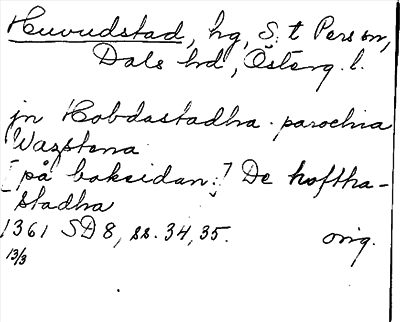 Huvudstad, hg, S:t Person,
Dals hd, Österg. l.
jn Hobdastadha parochia
Wazstena
[på baksidan:] De hoftha-
stadha
1361 SD 8, ss. 34, 35. orig.
13/3